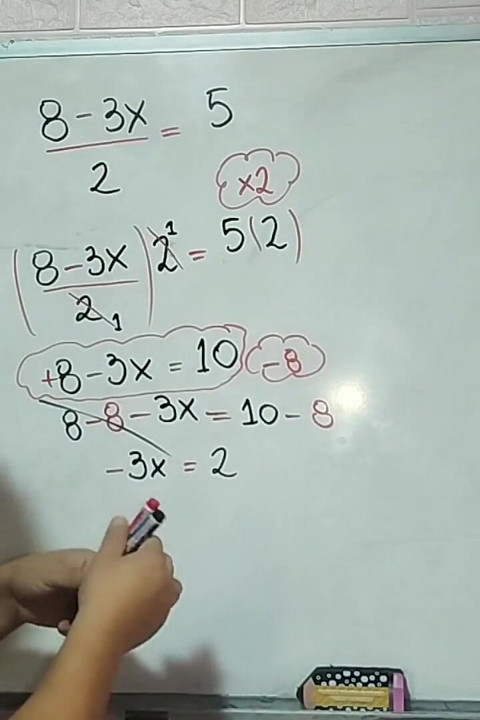 8 - 3x = 5
2
×2
(8 - 3x) 2 1 = 5(2)
2 1
+8 - 3x = 10 -8
8 - 8 - 3x = 10 - 8
-3x = 2